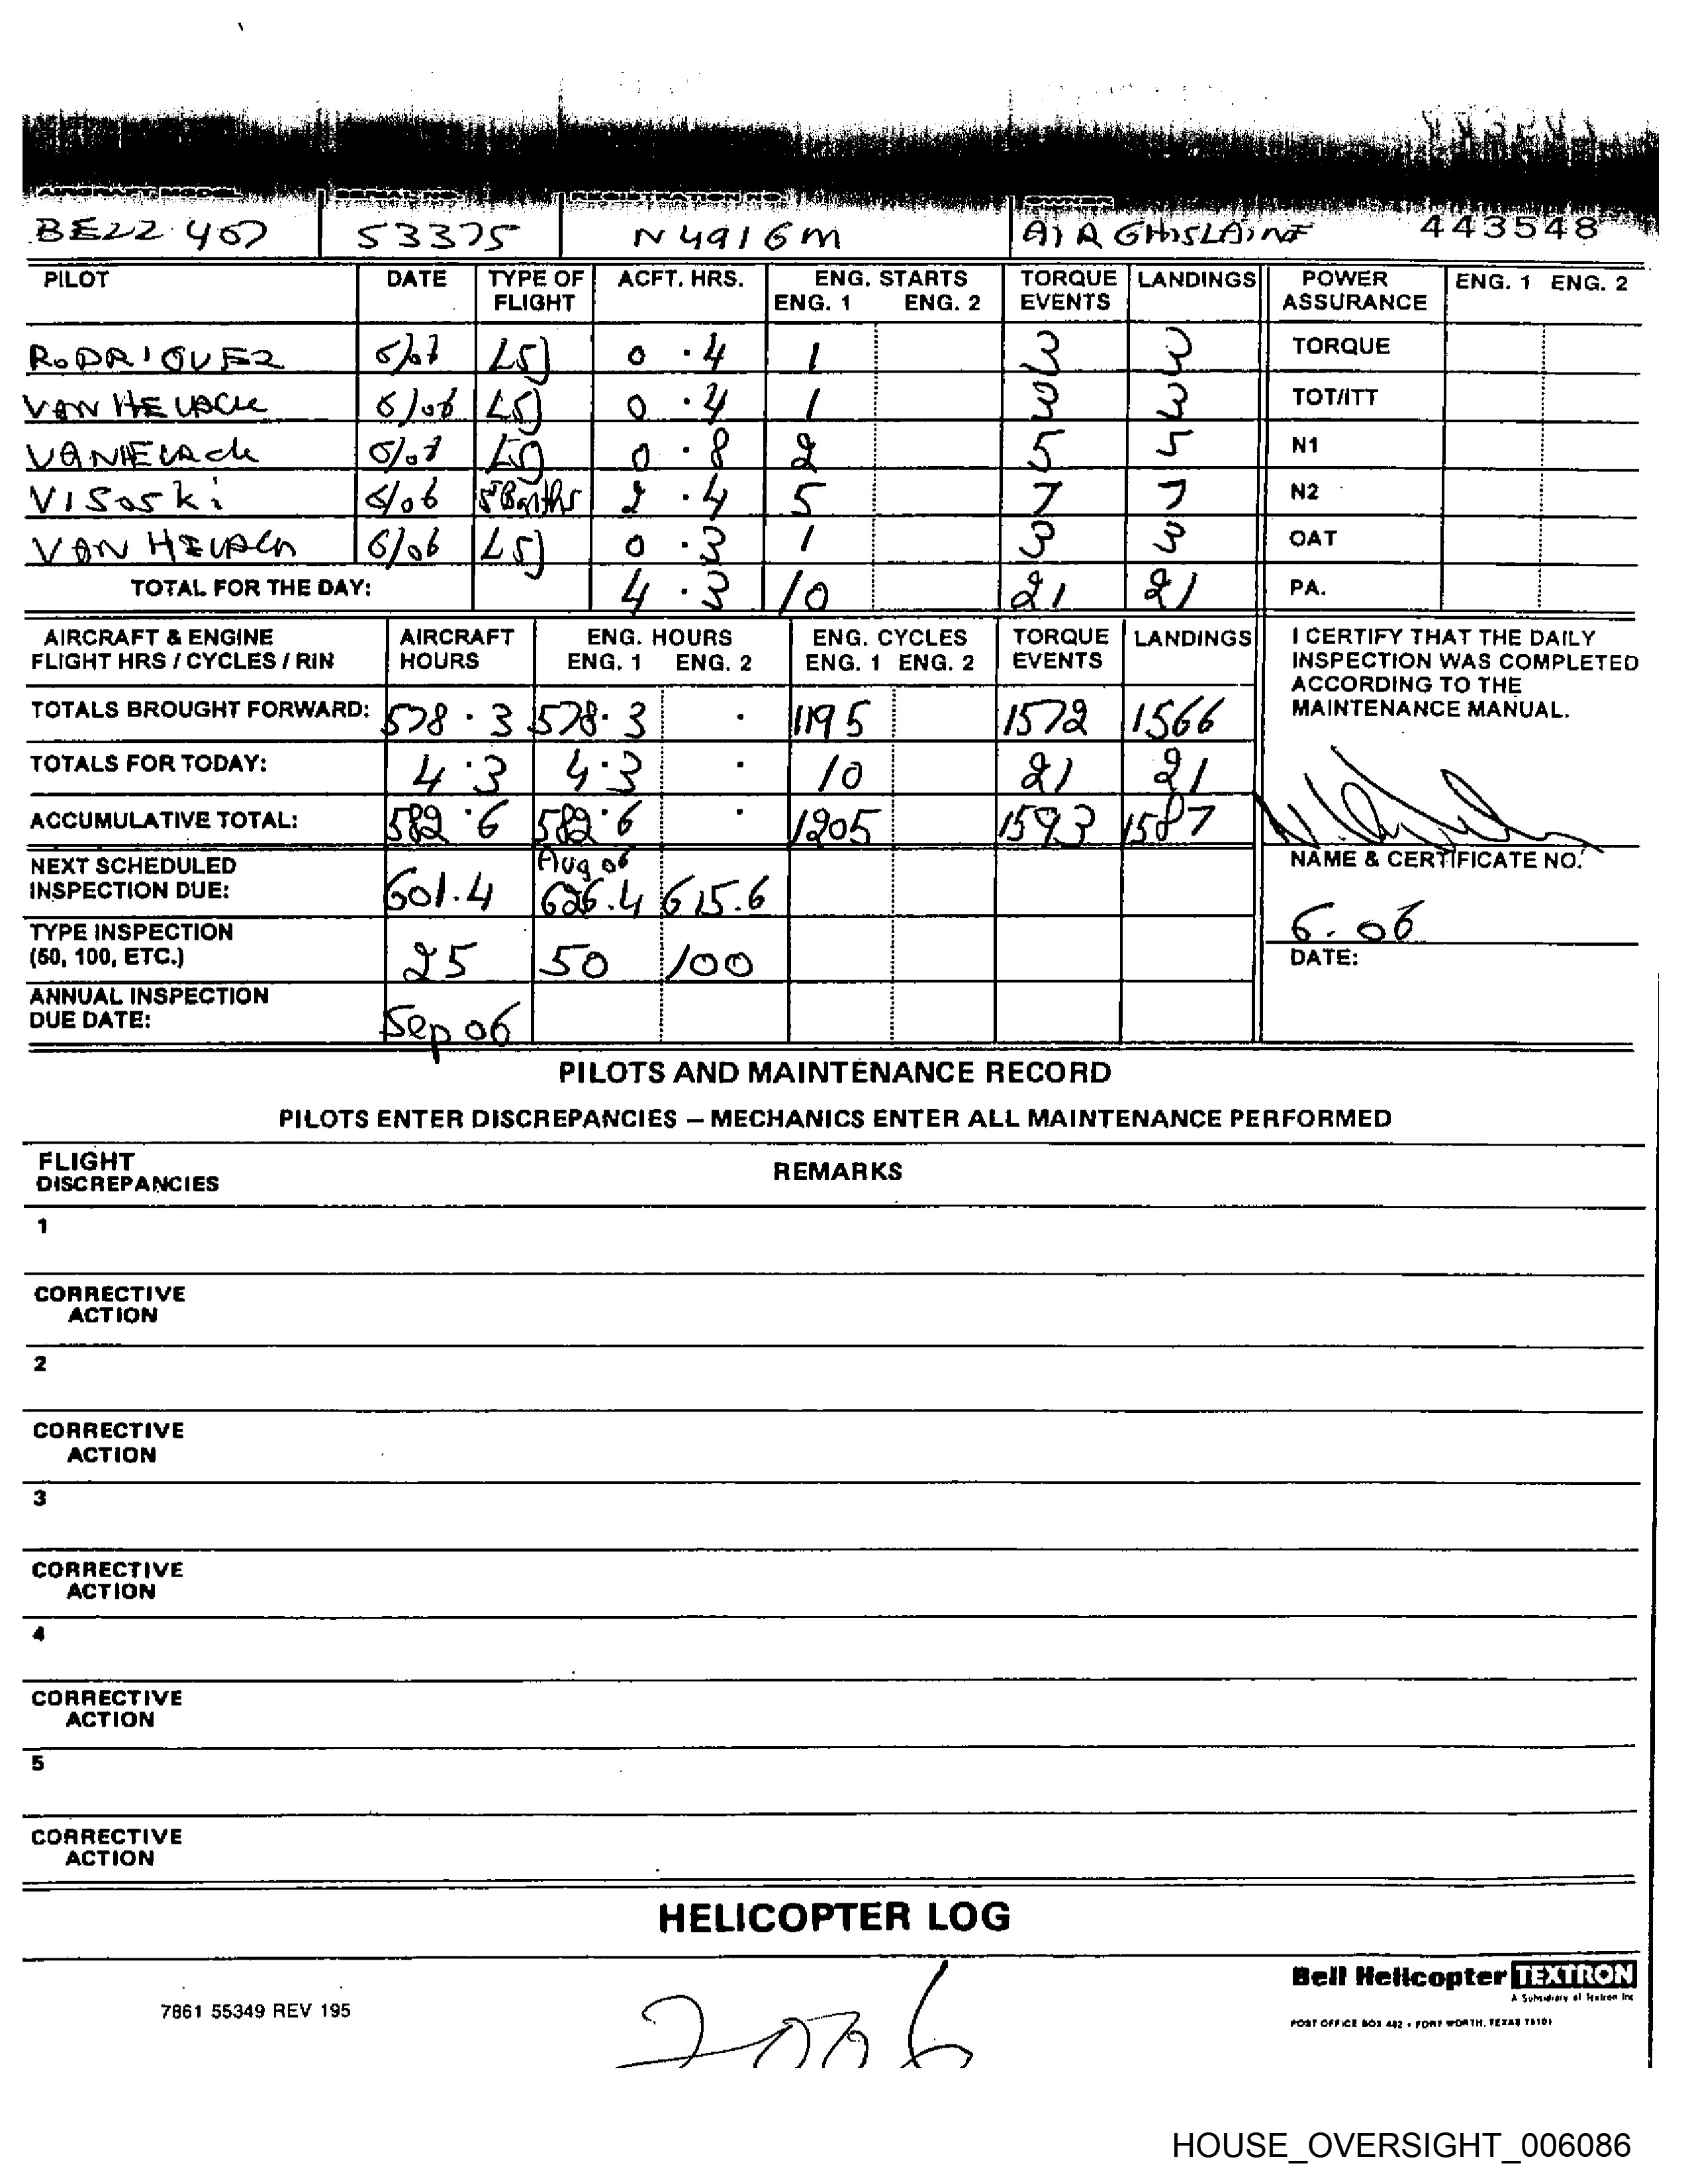 BELL 407 53375 N4916M AIR GHISLAINE 443548
PILOT DATE TYPE OF FLIGHT ACFT. HRS. ENG. STARTS ENG. 1 ENG. 2 TORQUE EVENTS LANDINGS POWER ASSURANCE ENG. 1 ENG. 2
RODRIQUEZ 0 .4 1 3 3 TORQUE
0 .4 1 3 3 TOT/ITT
0 .8 2 5 5 N1
VISOSKI 6/06 2 .4 5 7 7 N2
6/06 0 .3 1 3 3 OAT
TOTAL FOR THE DAY: 4 .3 10 21 21 PA.
AIRCRAFT & ENGINE FLIGHT HRS / CYCLES / RIN AIRCRAFT HOURS ENG. HOURS ENG. 1 ENG. 2 ENG. CYCLES ENG. 1 ENG. 2 TORQUE EVENTS LANDINGS
I CERTIFY THAT THE DAILY
INSPECTION WAS COMPLETED
ACCORDING TO THE
MAINTENANCE MANUAL.
TOTALS BROUGHT FORWARD: 578.3 578.3 . 1195 1572 1566
TOTALS FOR TODAY: 4.3 4.3 . 10 21 21
ACCUMULATIVE TOTAL: 582.6 582.6 . 1205 1593 1587
NAME & CERTIFICATE NO.
Aug 06
NEXT SCHEDULED INSPECTION DUE: 601.4 626.4 615.6
6.06
DATE:
TYPE INSPECTION (50, 100, ETC.) 25 50 100
ANNUAL INSPECTION DUE DATE: Sep 06
PILOTS AND MAINTENANCE RECORD
PILOTS ENTER DISCREPANCIES – MECHANICS ENTER ALL MAINTENANCE PERFORMED
FLIGHT DISCREPANCIES REMARKS
1
CORRECTIVE
ACTION
2
CORRECTIVE
ACTION
3
CORRECTIVE
ACTION
4
CORRECTIVE
ACTION
5
CORRECTIVE
ACTION
HELICOPTER LOG
Bell Helicopter TEXTRON
A Subsidiary of Textron Inc
POST OFFICE BOX 482 • FORT WORTH, TEXAS 76101
7861 55349 REV 195
2006
HOUSE_OVERSIGHT_006086